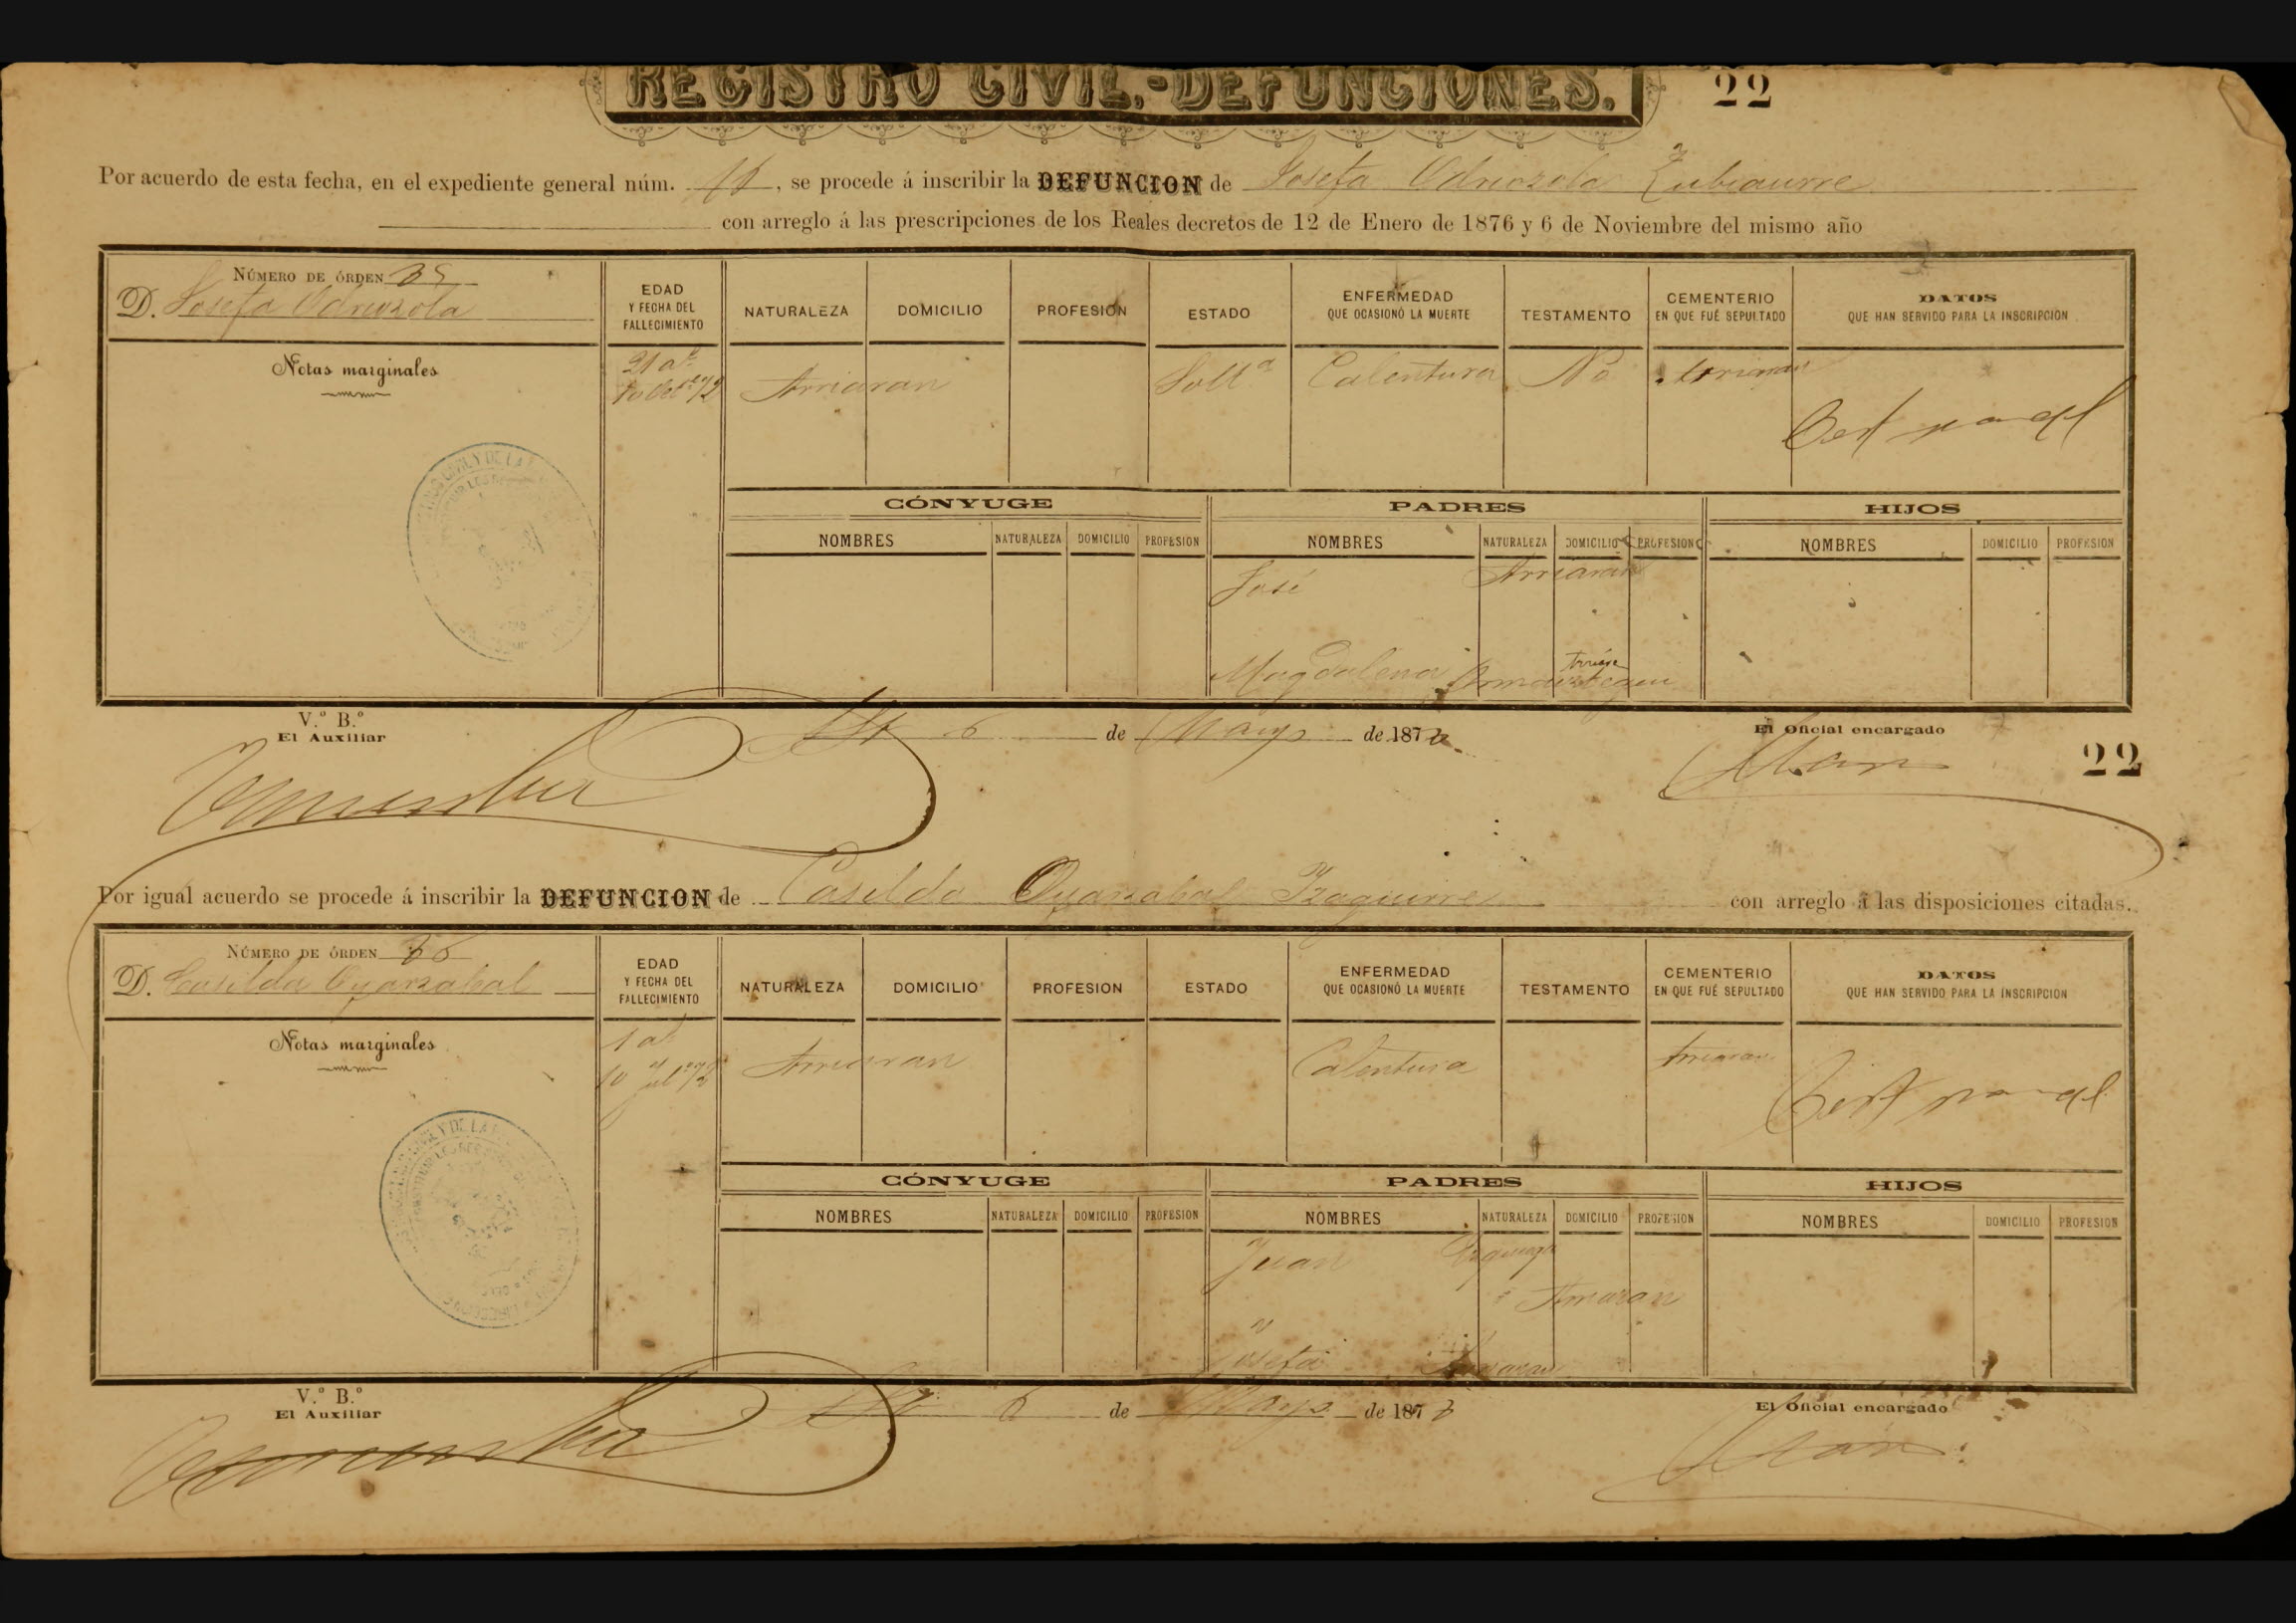 REGISTRO CIVIL.-DEFUNCIONES.
22
Por acuerdo de esta fecha, en el expediente general núm. , se procede á inscribir la DEFUNCION de Josefa Odriozola Zubiaurre
con arreglo á las prescripciones de los Reales decretos de 12 de Enero de 1876 y 6 de Noviembre del mismo año
NÚMERO DE ÓRDEN 35
D. Josefa Odriozola
EDAD Y FECHA DEL FALLECIMIENTO
NATURALEZA DOMICILIO PROFESION ESTADO
ENFERMEDAD QUE OCASIONÓ LA MUERTE
TESTAMENTO
CEMENTERIO EN QUE FUÉ SEPULTADO
DATOS QUE HAN SERVIDO PARA LA INSCRIPCION
Notas marginales
21 a.
Arriaran
Solt.ª
Calentura
No
Arriaran
CÓNYUGE PADRES HIJOS
NOMBRES NATURALEZA DOMICILIO PROFESION NOMBRES NATURALEZA DOMICILIO PROFESION NOMBRES DOMICILIO PROFESION
José Arriaran
Magdalena Ormaiztegui
V.º B.º
El Auxiliar
6 de Mayo de 187
El Oficial encargado
22
Por igual acuerdo se procede á inscribir la DEFUNCION de Casilda Oyarzabal Yzaguirre con arreglo á las disposiciones citadas.
NÚMERO DE ÓRDEN 36
D. Casilda Oyarzabal
EDAD Y FECHA DEL FALLECIMIENTO
NATURALEZA DOMICILIO PROFESION ESTADO
ENFERMEDAD QUE OCASIONÓ LA MUERTE
TESTAMENTO
CEMENTERIO EN QUE FUÉ SEPULTADO
DATOS QUE HAN SERVIDO PARA LA INSCRIPCION
Notas marginales
1 a.
Arriaran
Calentura
Arriaran
CÓNYUGE PADRES HIJOS
NOMBRES NATURALEZA DOMICILIO PROFESION NOMBRES NATURALEZA DOMICILIO PROFESION NOMBRES DOMICILIO PROFESION
Juan
Arriaran
Josefa Arriaran
V.º B.º
El Auxiliar
6 de Mayo de 187
El Oficial encargado